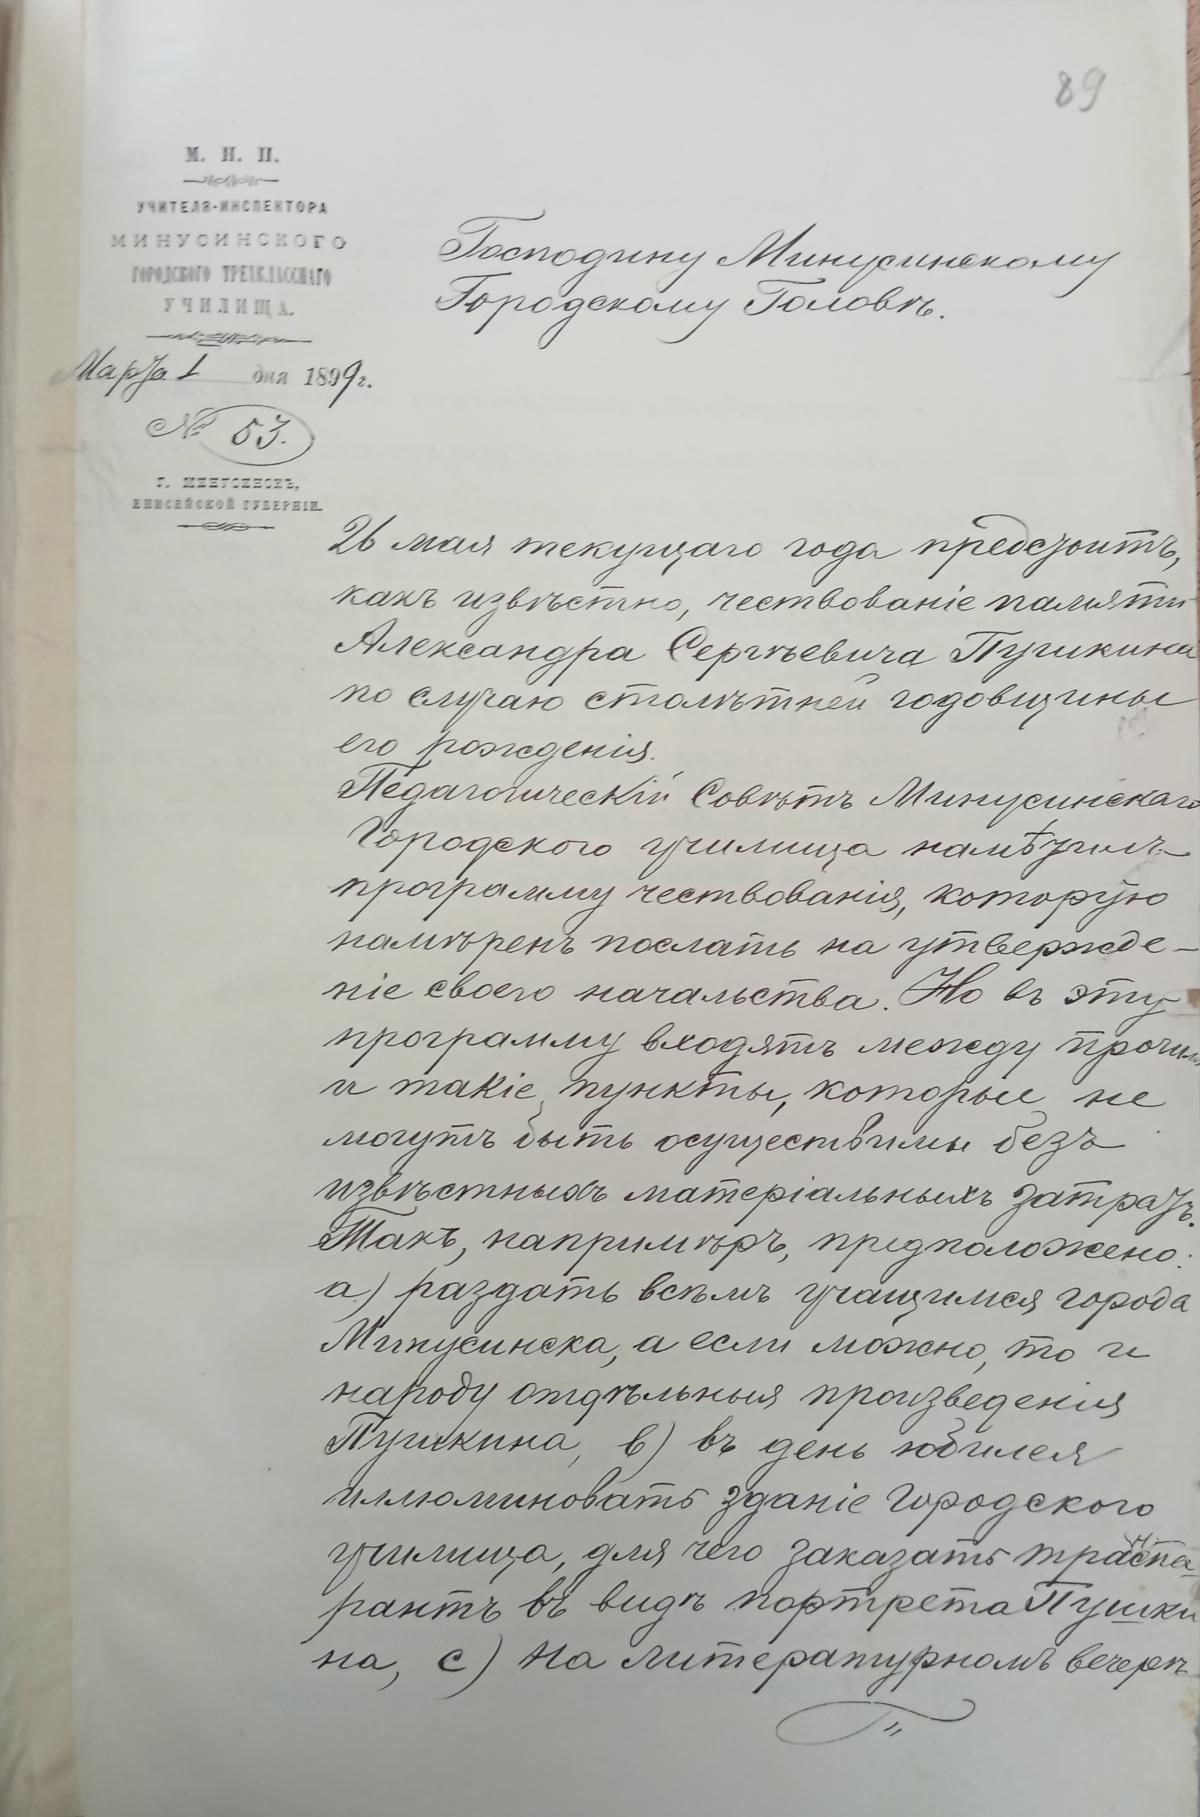 89
М. Н. П.
УЧИТЕЛЯ-ИНСПЕКТОРА
МИНУСИНСКОГО
ГОРОДСКОГО ТРЕХКЛАССНАГО
УЧИЛИЩА.
Марта 1 дня 1899 г.
№ 53.
Г. МИНУСИНСКЪ,
ЕНИСЕЙСКОЙ ГУБЕРНІИ.
Господину Минусинскому
Городскому Головѣ.
26 мая текущаго года предстоитъ,
какъ извѣстно, чествованіе памяти
Александра Сергѣевича Пушкина
по случаю столѣтней годовщины
его рожденія.
Педагогическій Совѣтъ Минусинскаго
Городского училища намѣтилъ
программу чествованія, которую
намѣренъ послать на утвержде-
ніе своего начальства. Но въ эту
программу входятъ между прочимъ
и такіе пункты, которые не
могутъ быть осуществимы безъ
извѣстныхъ матеріальныхъ затратъ.
Такъ, напримѣръ, предположено:
а) раздать всѣмъ учащимся города
Минусинска, а если можно, то и
народу отдѣльныя произведенія
Пушкина, в) въ день юбилея
иллюминовать зданіе Городского
училища, для чего заказать транспа-
рантъ въ видѣ портрета Пушки
на, с) на литературномъ вечерѣ